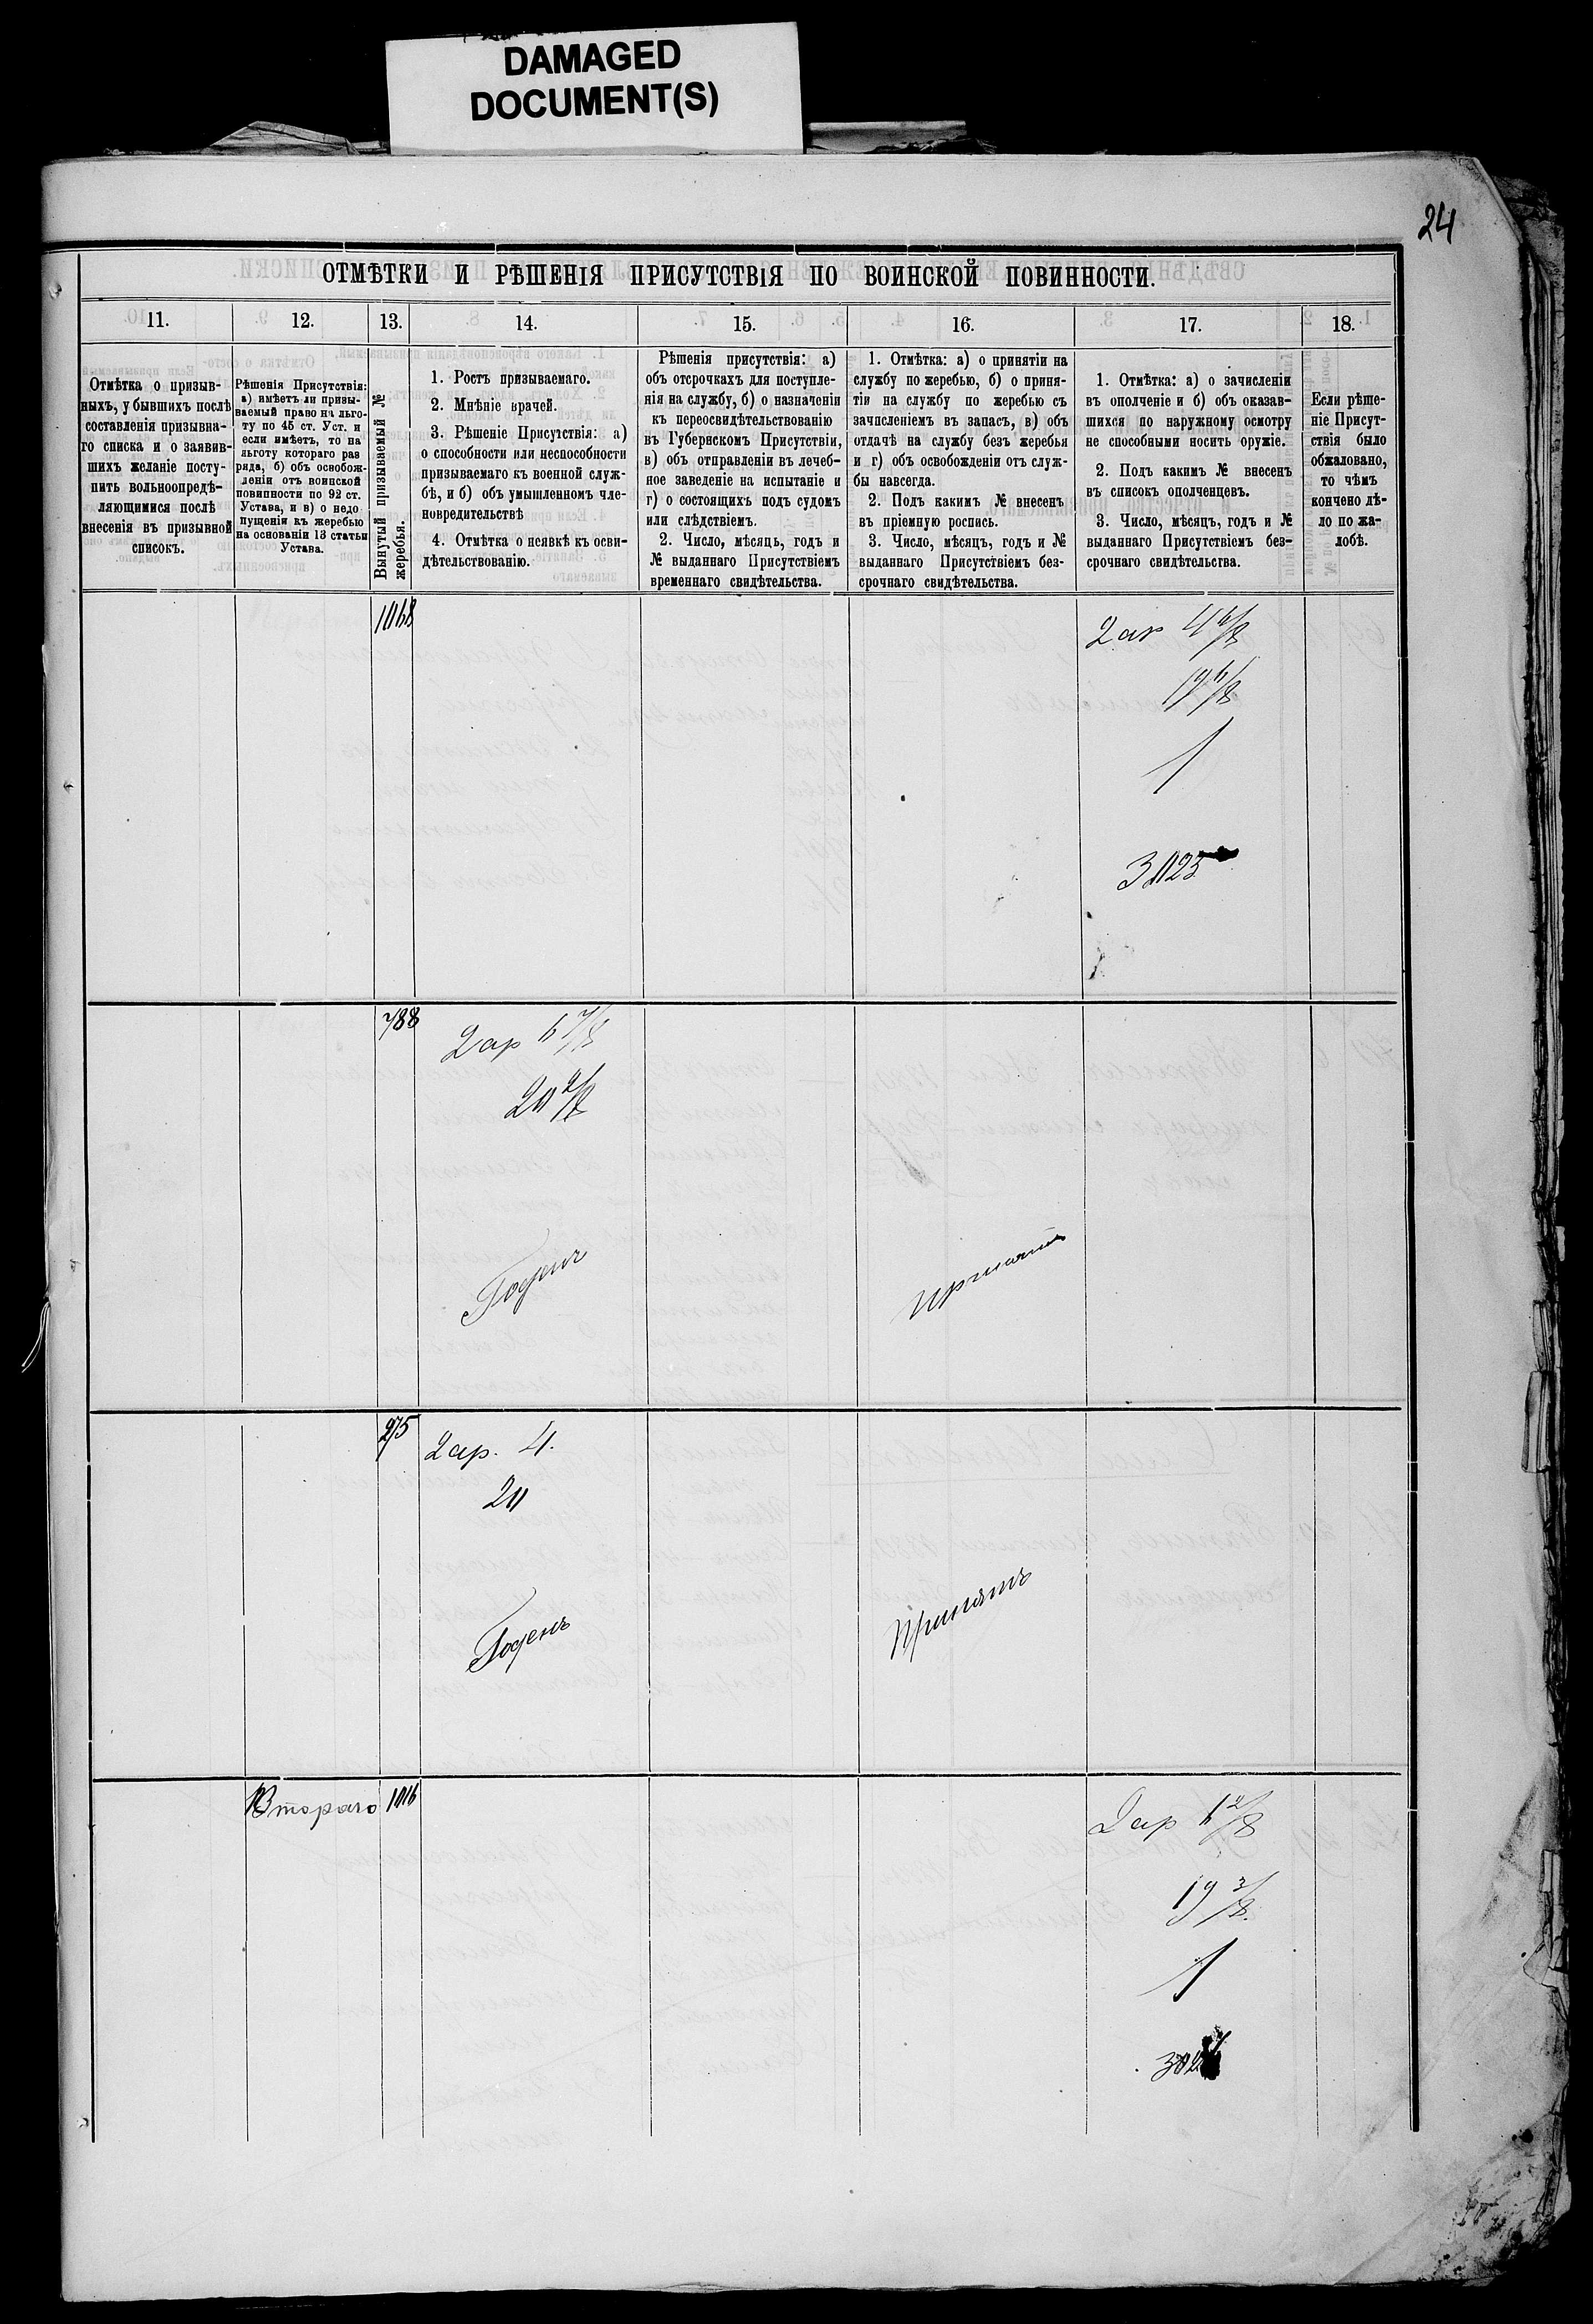 DAMAGED
DOCUMENT(S)
24
ОТМѢТКИ И РѢШЕНІЯ ПРИСУТСТВІЯ ПО ВОИНСКОЙ ПОВИННОСТИ.
11.
12.
13.
14.
15.
16.
17.
18.
Отмѣтка о призыв-
ныхъ, у бывшихъ послѣ
составленія призывна-
го списка и о заявив-
шихъ желаніе посту-
пить вольноопредѣ-
ляющимися послѣ
внесенія въ призывной
списокъ.
Рѣшенія Присутствія:
а) имѣетъ ли призы-
ваемый право на льго-
ту по 45 ст. Уст. и
если имѣетъ, то на
льготу котораго раз
ряда, б) объ освобож-
деніи отъ воинской
повинности по 92 ст.
Устава, и в) о недо
пущеніи къ жеребью
на основаніи 13 статьи
Устава.
Вынутый призываемый №
жеребья.
1. Ростъ призываемаго.
2. Мнѣніе врачей.
3. Рѣшеніе Присутствія: а)
о способности или неспособности
призываемаго къ военной служ-
бѣ, и б) объ умышленномъ чле-
новредительствѣ
4. Отмѣтка о неявкѣ къ осви-
дѣтельствованію.
Рѣшенія присутствія: а)
объ отсрочкахъ для поступле-
нія на службу, б) о назначеніи
къ переосвидѣтельствованію
въ Губернскомъ Присутствіи,
в) объ отправленіи въ лечеб-
ное заведеніе на испытаніе и
г) о состоящихъ подъ судомъ
или слѣдствіемъ.
2. Число, мѣсяцъ, годъ и
№ выданнаго Присутствіемъ
временнаго свидѣтельства.
1. Отмѣтка: а) о принятіи на
службу по жеребью, б) о приня-
тіи на службу по жеребью съ
зачисленіемъ въ запасъ, в) объ
отдачѣ на службу безъ жеребья
и г) объ освобожденіи отъ служ-
бы навсегда.
2. Подъ какимъ № внесенъ
въ пріемную роспись.
3. Число, мѣсяцъ, годъ и №
выданнаго Присутствіемъ без-
срочнаго свидѣтельства.
1. Отмѣтка: а) о зачисленіи
въ ополченіе и б) объ оказав-
шихся по наружному осмотру
не способными носить оружіе.
2. Подъ какимъ № внесенъ
въ списокъ ополченцевъ.
3. Число, мѣсяцъ, годъ и №
выданнаго Присутствіемъ без-
срочнаго свидѣтельства.
Если рѣше-
ніе Присут-
ствія было
обжаловано,
то чѣмъ
кончено дѣ-
ло по жа-
лобѣ.
1068
2 ар 4 6/8
19 6/8
1
3023
788
2 ар 6 7/8
20 2/8
Годенъ
принятъ
275
2 ар. 4.
20
Годенъ
принятъ
Втораго
1016
2 ар 6 2/8
19 3/8.
1